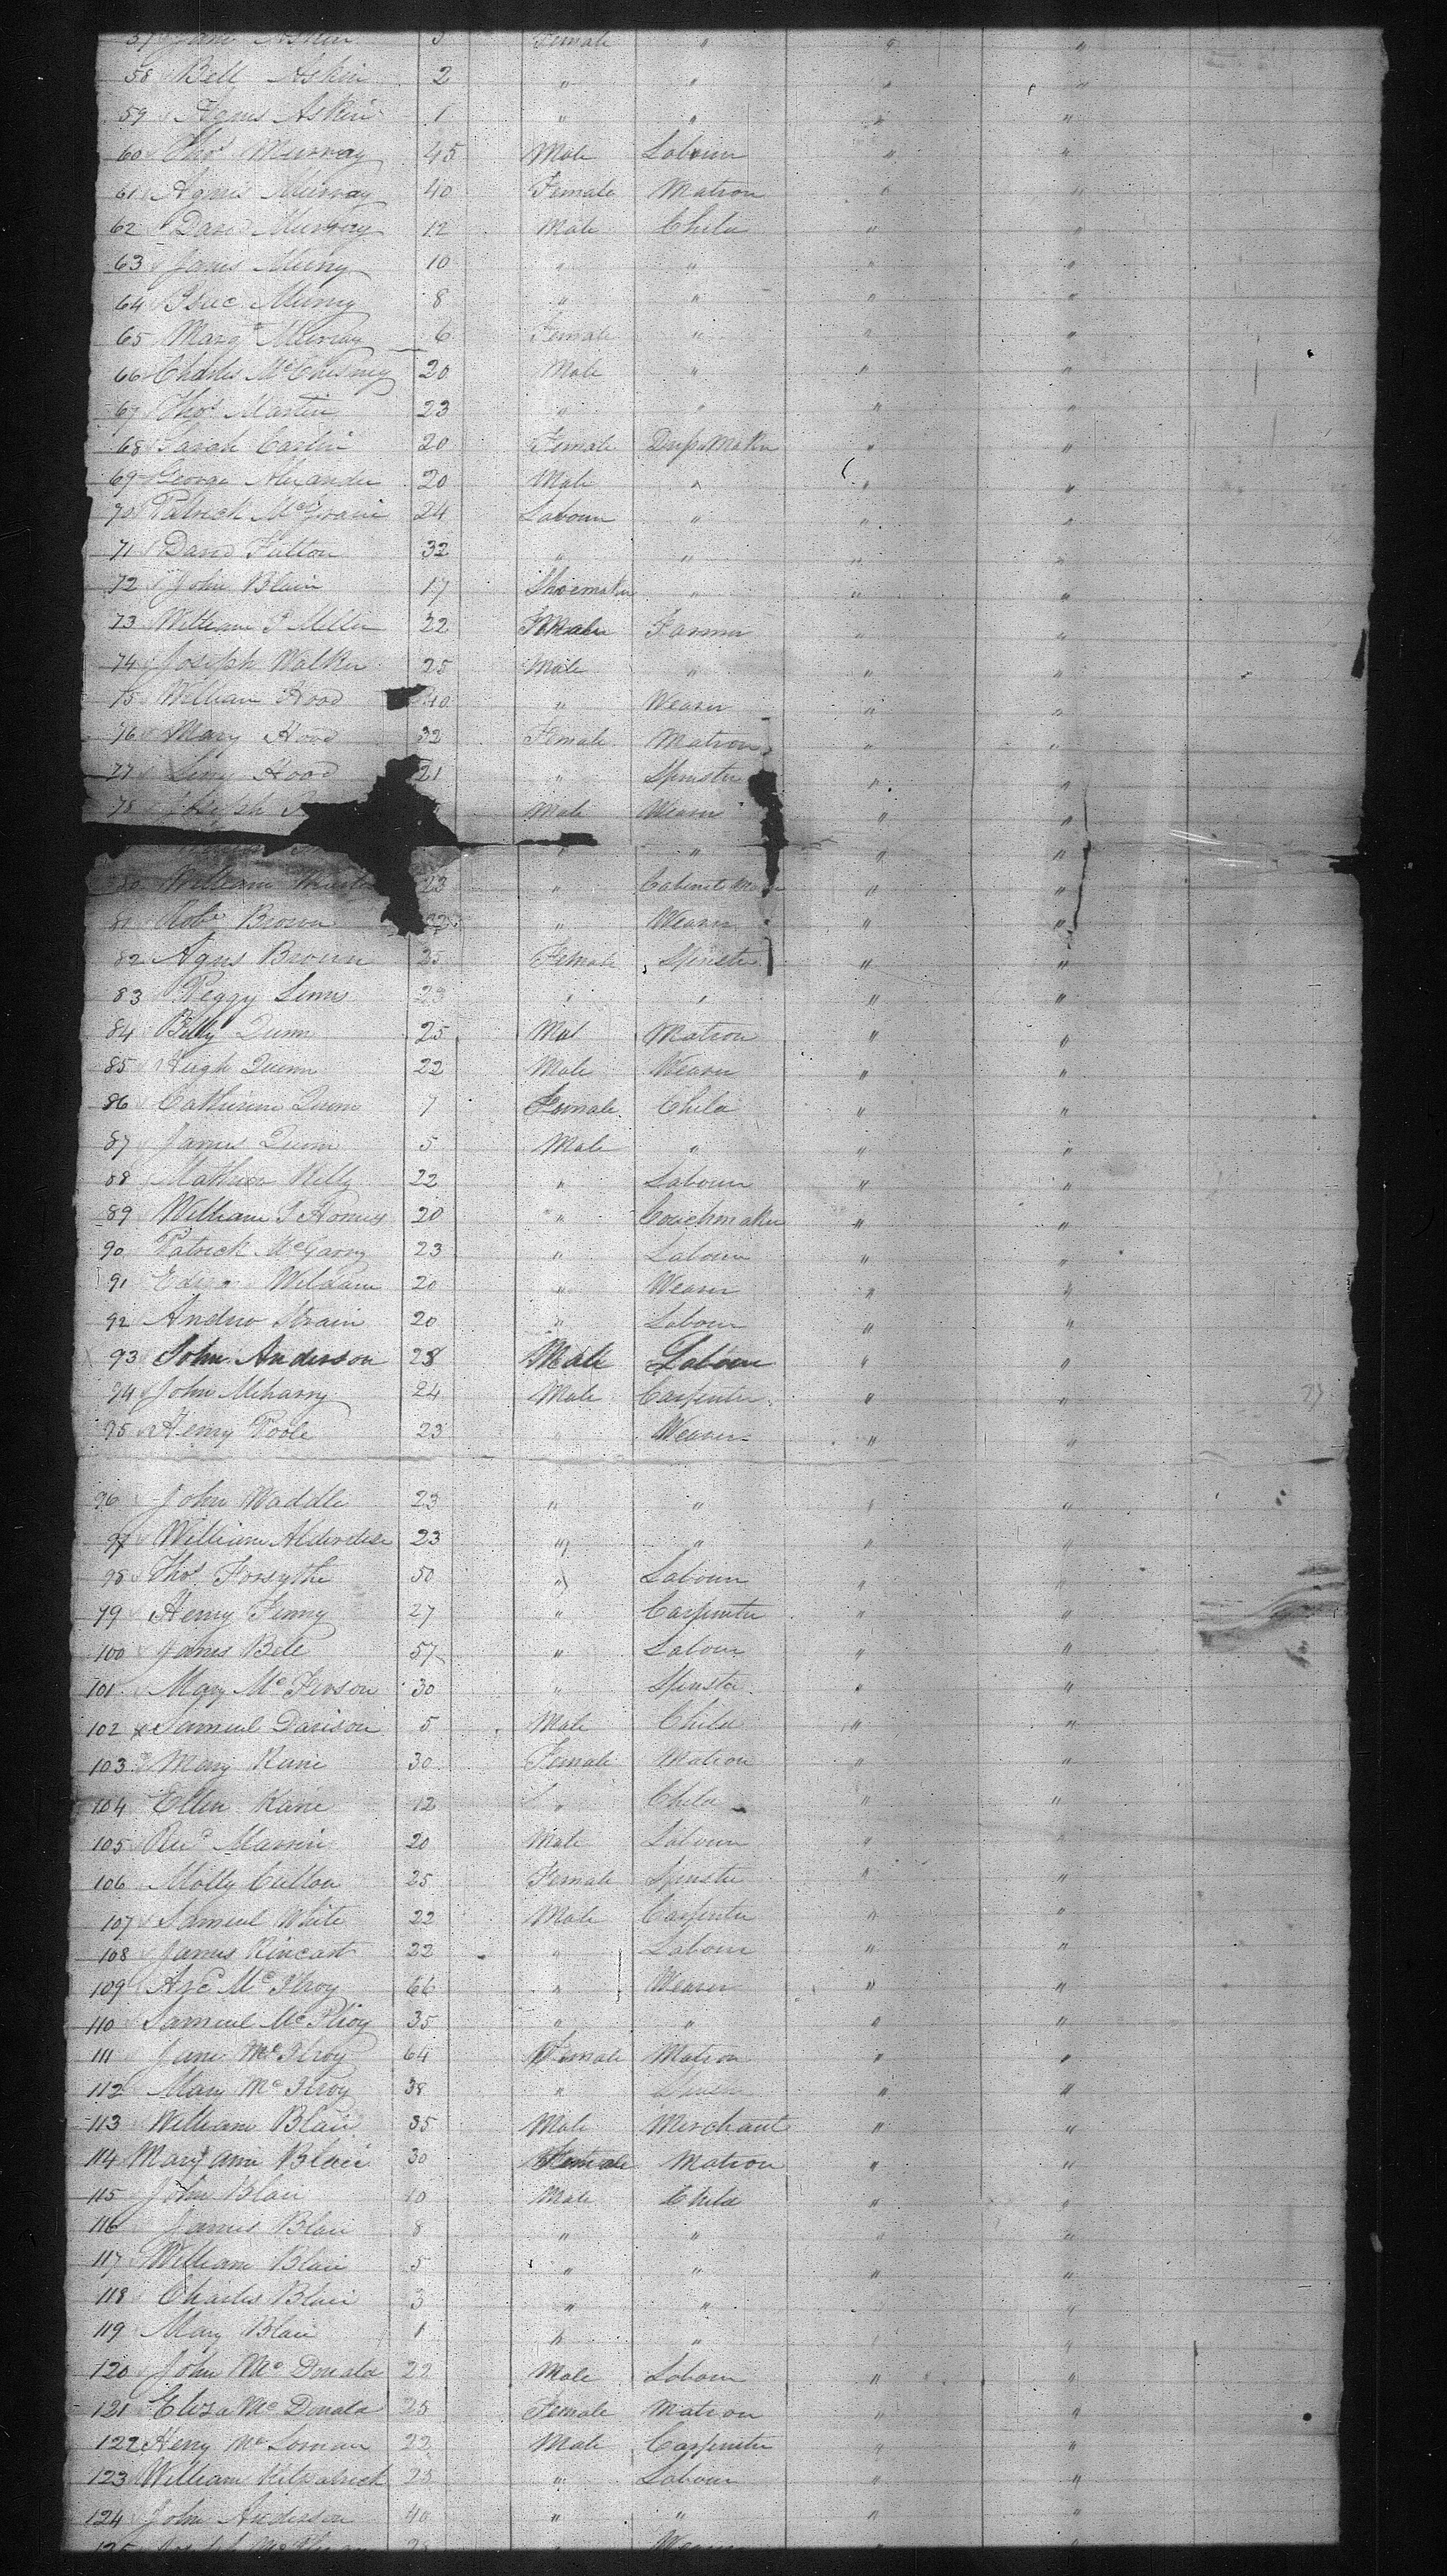 57 Jane Askin 3 Female " " "
58 Bell Askin 2 " " " "
59 Agnes Askin 1 " " " "
60 Thos Murray 45 Male Labour " "
61 Agnes Murray 40 Female Matron " "
62 David Murray 12 Male Child " "
63 James Murry 10 " " " "
64 Isuc Murry 8 " " " "
65 Margt Murray 6 Female " " "
66 Charles McChesney 20 Male " " "
67 Thos Martin 23 " " " "
68 Sarah Carlin 20 Female Dressmaker " "
69 George Alexander 20 Male " " "
70 Patrick 24 Labour " " "
71 David Fulton 32 " " " "
72 John Blair 17 Shoemaker " " "
73 William J Miller 22 Farmer " "
74 Joseph Walker 25 Male " " "
75 William Hood 40 " Weaver " "
76 Mary Hood 32 Female Matron " "
77 Hood 21 " Spinster " "
78 Joseph Male Weaver " "
" " " "
80 William 23 " Cabinet " "
81 Robt Brown 22 " Weaver " "
82 Agnes Brown 25 Female Spinster " "
83 Peggy Sims 23 " " " "
84 Billy Quinn 25 Mal Matron " "
85 Hugh Quinn 22 Male Weaver " "
86 Catherine Quinn 7 Female Child " "
87 James Quinn 5 Male " " "
88 Mathew Kelly 22 " Labour " "
89 William J 20 " Coachmaker " "
90 Patrick McGarry 23 " Labour " "
91 20 " Weaver " "
92 Andrew Strain 20 " Labour " "
93 John Anderson 28 Male Labour " "
94 John Meharry 24 Male Carpenter " "
95 Henry Poole 23 " Weaver " "
96 John Waddle 23 " " " "
97 William Alderdise 23 " " " "
98 Thos Forsythe 50 " Labour " "
99 Henry Finny 27 " Carpenter " "
100 James Bell 57 " Labour " "
101 Mary McFerson 30 " Spinster " "
102 x Samuel Davison 5 Male Child " "
103 Mary Kane 30 Female Matron " "
104 Ellen Kane 12 " Child " "
105 20 Male Labour " "
106 Molly Cullon 25 Female Spinster " "
107 Samuel White 22 Male Carpenter " "
108 James Kincart 22 " Labour " "
109 Arc McIlroy 66 " Weaver " "
110 Samuel McIlroy 35 " " " "
111 Jane McIlroy 64 Female Matron " "
112 Mary McIlroy 38 " " "
113 William Blair 35 Male Merchant " "
114 Mary ann Blair 30 Female Matron " "
115 John Blair 10 Male Child " "
116 James Blair 8 " " " "
117 William Blair 5 " " " "
118 Charles Blair 3 " " " "
119 Mary Blair 1 " " " "
120 John McDonald 22 Male Labour " "
121 Eliza McDonald 25 Female Matron " "
122 Henry 22 Male Carpenter " "
123 William Kilpatrick 25 " Labour " "
124 John Anderson 40 " " " "
125 Joseph 28 " Weaver " "